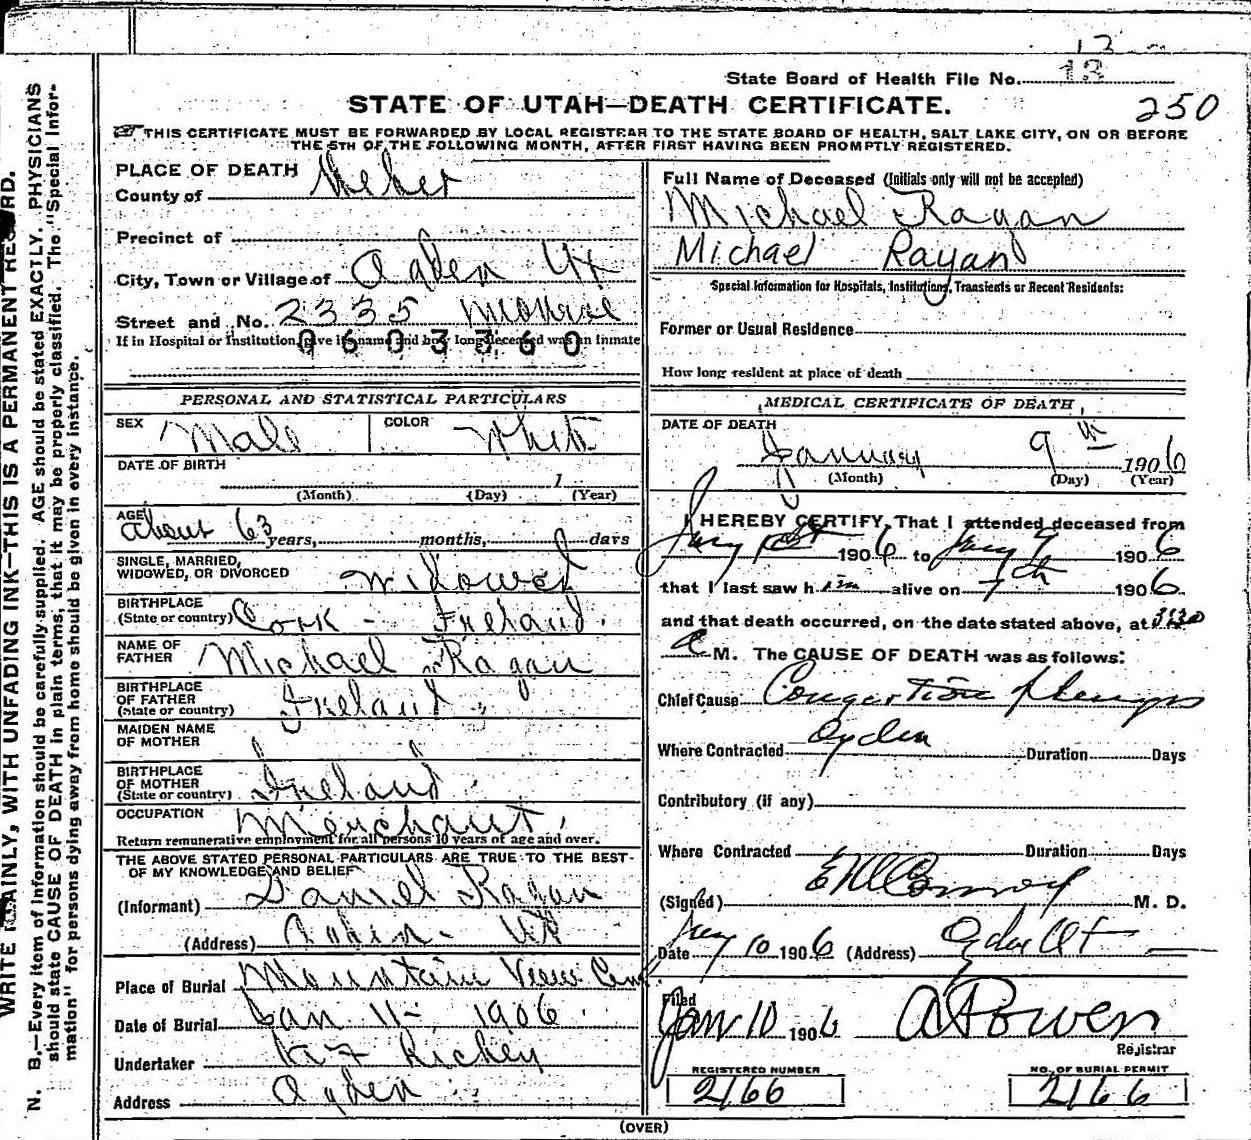 State Board of Health File No. 13
STATE OF UTAH—DEATH CERTIFICATE.
250
THIS CERTIFICATE MUST BE FORWARDED BY LOCAL REGISTRAR TO THE STATE BOARD OF HEALTH, SALT LAKE CITY, ON OR BEFORE
THE 5TH OF THE FOLLOWING MONTH, AFTER FIRST HAVING BEEN PROMPTLY REGISTERED.
WRITE PLAINLY, WITH UNFADING INK—THIS IS A PERMANENT RECORD.
N. B.—Every item of information should be carefully supplied. AGE should be stated EXACTLY. PHYSICIANS
should state CAUSE OF DEATH in plain terms, that it may be properly classified. The "Special Infor-
mation" for persons dying away from home should be given in every instance.
PLACE OF DEATH
County of Weber
Precinct of
City, Town or Village of Ogden Ut
Street and No. 2335 Monroe
If in Hospital or Institution, give its name and how long deceased was an inmate
0603360
PERSONAL AND STATISTICAL PARTICULARS
SEX Male COLOR White
DATE OF BIRTH
1
(Month) (Day) (Year)
AGE
about 63 years, months, days
SINGLE, MARRIED,
WIDOWED, OR DIVORCED Widowed
BIRTHPLACE
(State or country) Cork - Ireland.
NAME OF
FATHER Michael Ragan
BIRTHPLACE
OF FATHER
(State or country) Ireland
MAIDEN NAME
OF MOTHER
BIRTHPLACE
OF MOTHER
(State or country) Ireland
OCCUPATION Merchant.
Return remunerative employment for all persons 10 years of age and over.
THE ABOVE STATED PERSONAL PARTICULARS ARE TRUE TO THE BEST
OF MY KNOWLEDGE AND BELIEF
(Informant) Daniel Ragan
(Address) Ogden - Ut
Place of Burial Mountain View Cem
Date of Burial Jan 11 - 1906
Undertaker Richey
Address Ogden
Full Name of Deceased (Initials only will not be accepted)
Michael Ragan
Michael Rayan
Special Information for Hospitals, Institutions, Transients or Recent Residents:
Former or Usual Residence
How long resident at place of death
MEDICAL CERTIFICATE OF DEATH
DATE OF DEATH
January 9th 1906
(Month) (Day) (Year)
I HEREBY CERTIFY, That I attended deceased from
Jany 1st 1906 to Jany 7 1906
that I last saw him alive on 7th 1906
and that death occurred, on the date stated above, at 3:30
a M. The CAUSE OF DEATH was as follows:
Chief Cause Congestion of Lungs
Where Contracted Ogden Duration Days
Contributory (if any)
Where Contracted Duration Days
(Signed) Conroy M. D.
Date Jany 10 1906 (Address) Ogden Ut
Filed
Jan 10 1906 Bowen
Registrar
REGISTERED NUMBER NO. OF BURIAL PERMIT
2166 2166
(OVER)